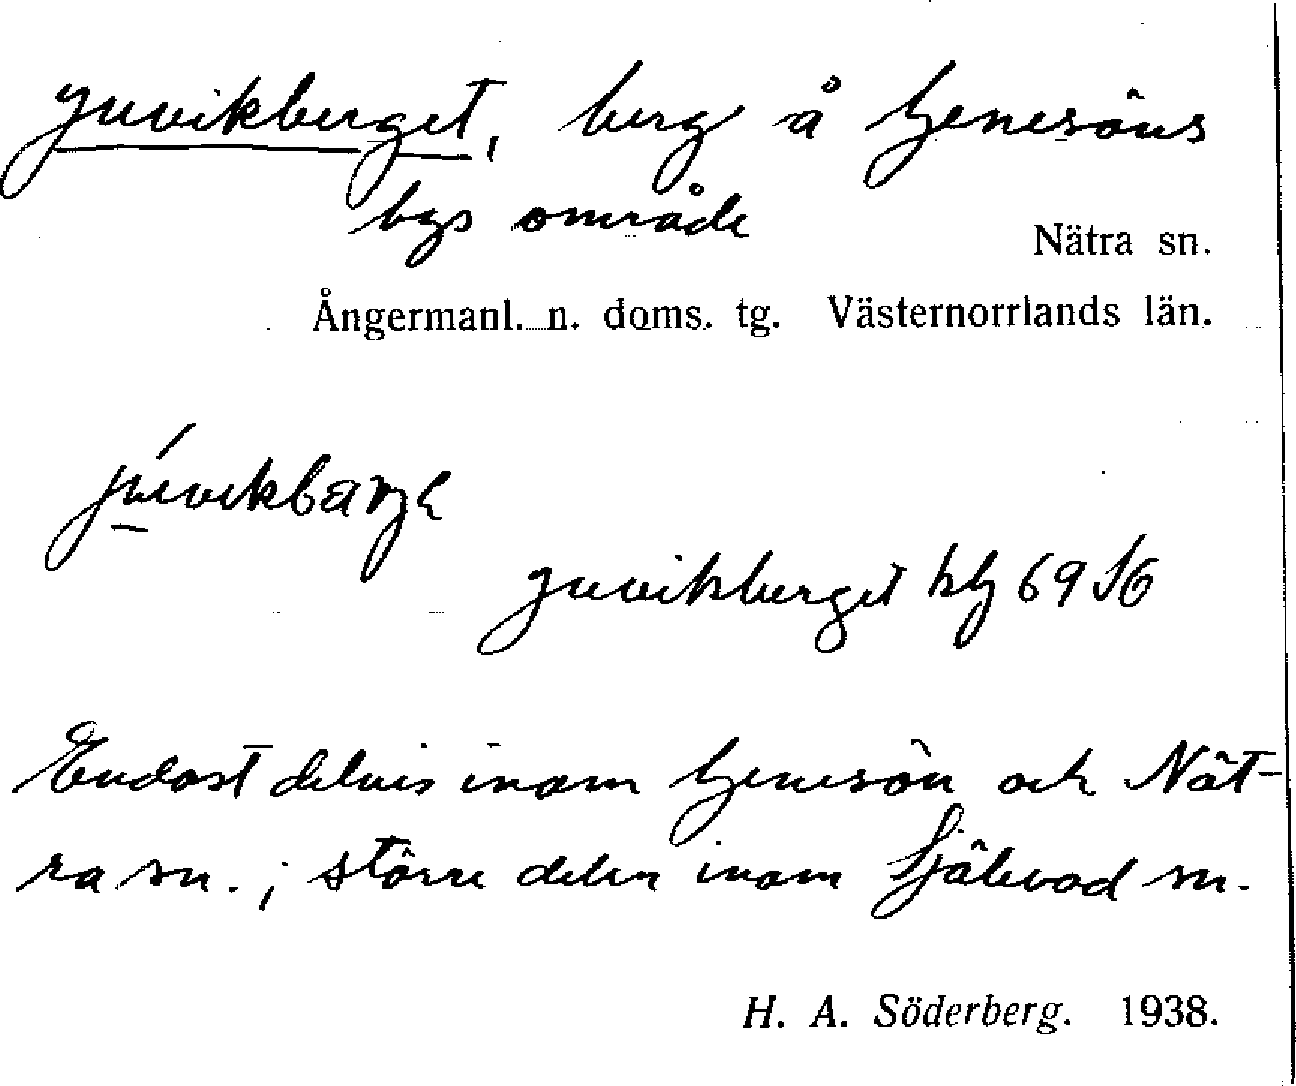 Juvikberget, berg å Genesöns
bys område
Nätra sn.
Ångermanl. n. doms. tg. Västernorrlands län.
Juvikberget kbl 69 SO
Endast delvis inom Genesön och Nät-
ra sn.; större delen inom Själevad sn.
H. A. Söderberg. 1938.